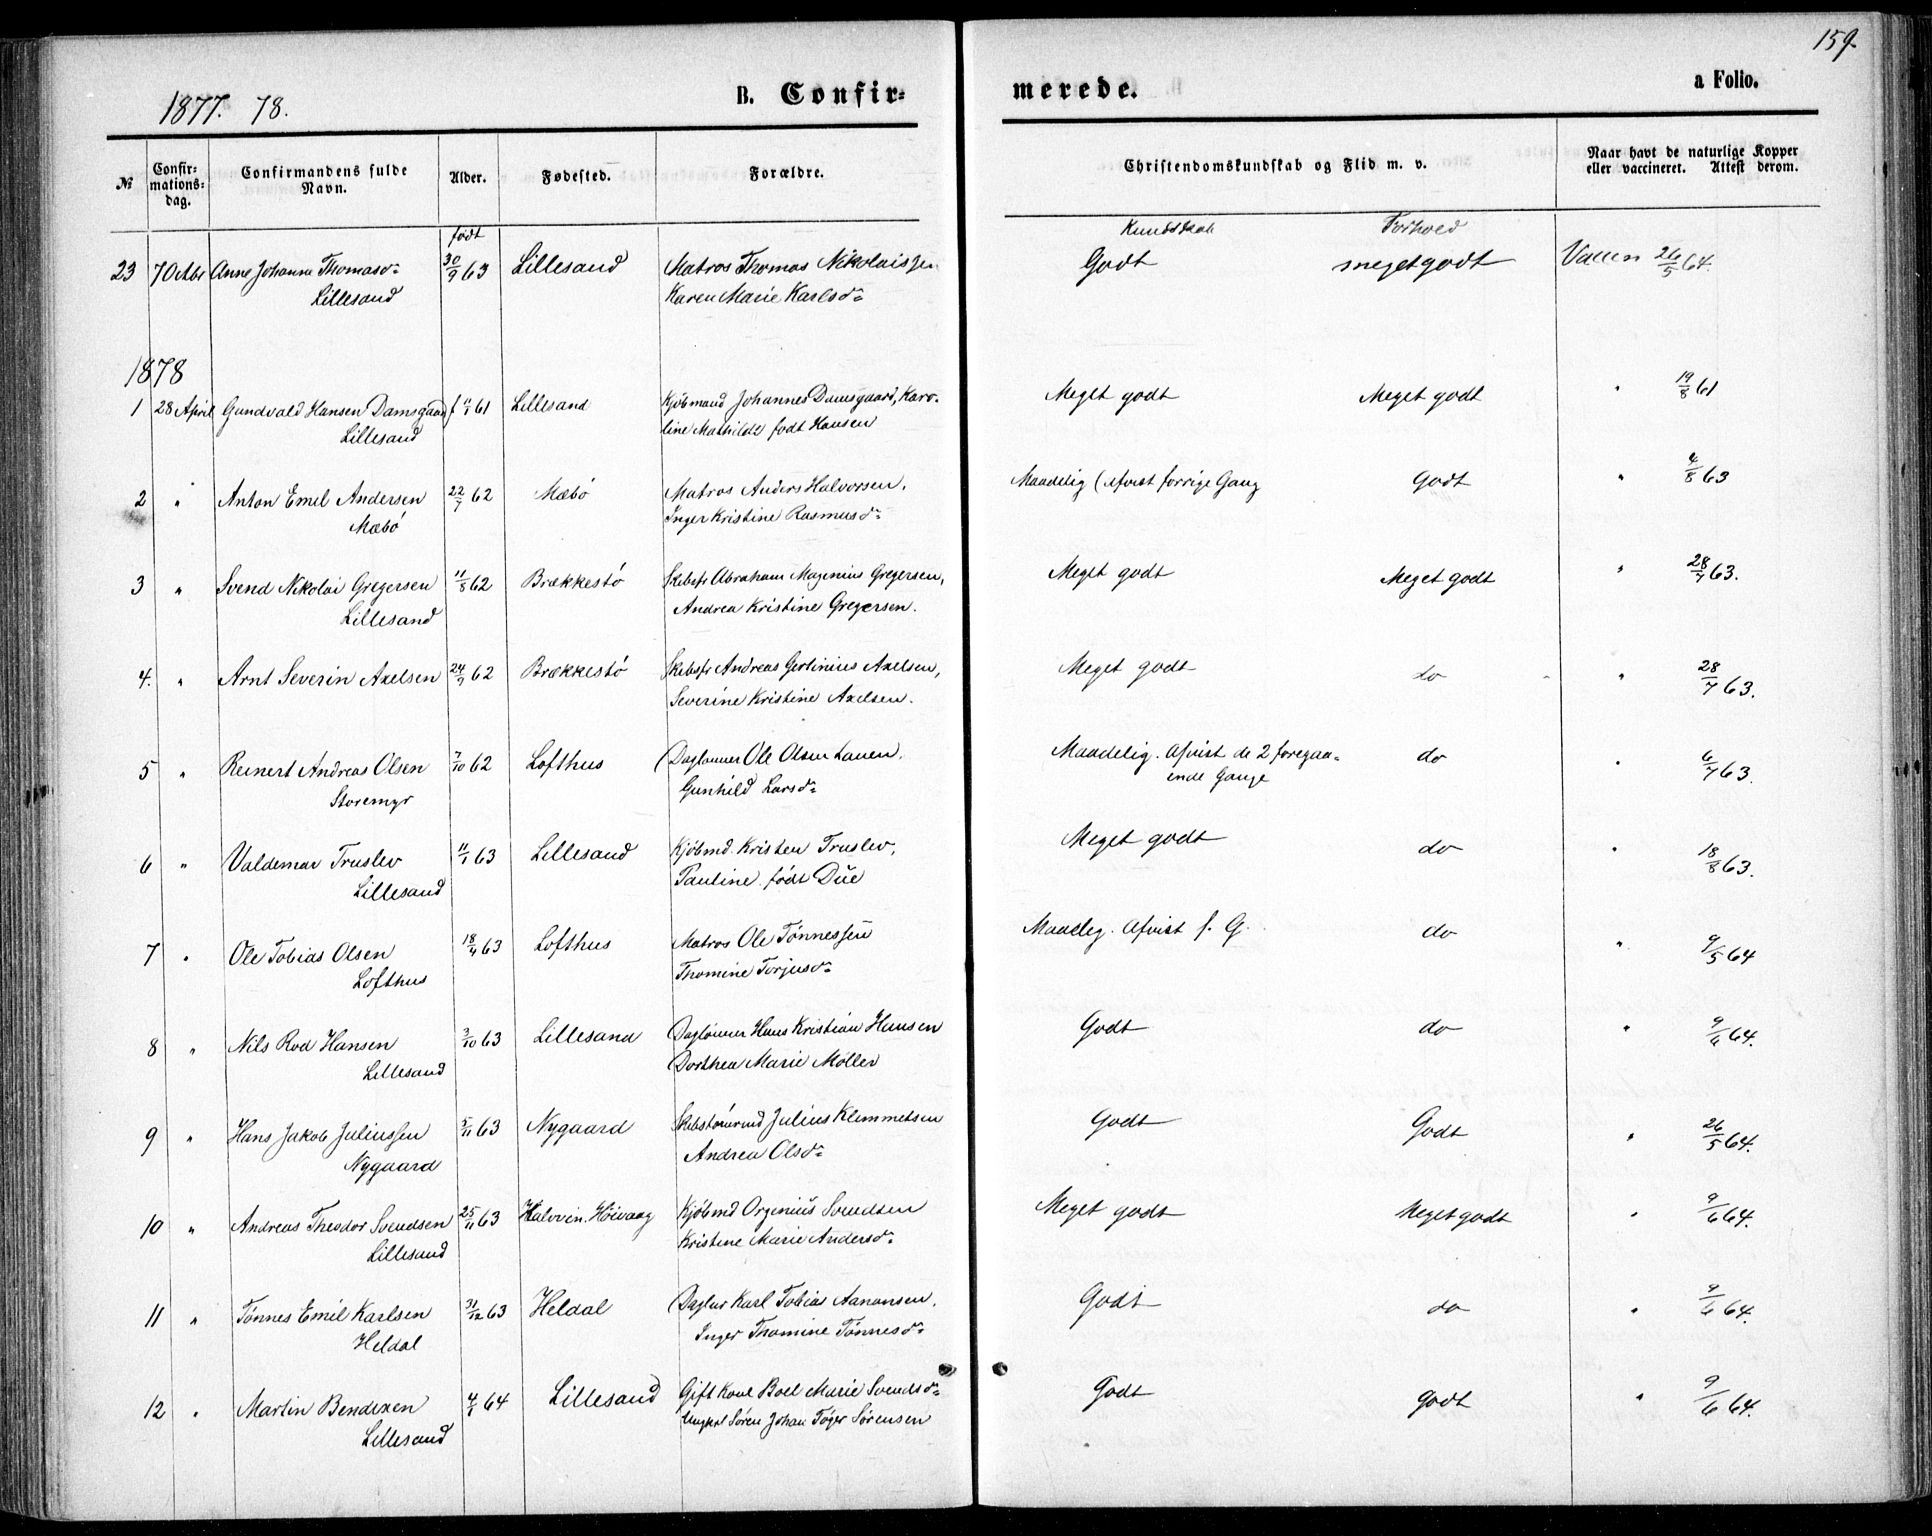 159.
1877. 78.
B. Confir=
merede.
a Folio.
№
Confir-
mations-
dag.
Confirmandens fulde
Navn.
Alder.
Fødested.
Forældre.
Christendomskundskab og Flid m. v.
Naar havt de naturlige Kopper
eller vaccineret. Attest derom.
født
Kundskab
Forhold
23 7 Octbr Anne Johanne Thomasd. 30/9 63 Lillesand Matros Thomas Nikolaissen Godt meget godt Vaccin 26/5 64.
Lillesand Karen Marie Karlsd.
1878
1 28 April Gundvald Hansen Damsgaard f 11/1 61 Lillesand Kjøbmand Johannes Damsgaard, Karo- Meget godt Meget godt " 19/8 61
Lillesand line Mathilde født Hansen
2 " Anton Emil Andersen 22/7 62 Mæbø Matros Anders Halvorsen, Maadelig (Afvist forrige Gang Godt " 4/8 63
Mæbø Inger Kristine Rasmusd.
3 " Svend Nikolai Gregersen 11/8 62 Brækkestø Skibsfr Abraham Magenius Gregersen, Meget godt Meget godt " 28/7 63.
Lillesand Andrea Kristine Gregersen.
4. " Arnt Severin Axelsen 24/9 62 Brækkestø Skibsfr Andreas Gertinius Axelsen, Meget godt do " 28/7 63.
Severine Kristine Axelsen.
5 " Reinert Andreas Olsen 7/10 62 Lofthus Daglønner Ole Olsen Lauen, Maadelig. Afvist de 2 foregaa= do " 6/7 63.
Storemyr Gunhild Larsd. ende Gange
6 " Valdemar Truslev 11/1 63 Lillesand Kjøbmd. Kristen Truslev, Meget godt do " 18/8 63.
Lillesand Pauline født Düe
7 " Ole Tobias Olsen 18/4 63 Lofthus Matros Ole Tønnessen Maadelig. Afvist f. G. do " 9/5 64
Lofthus Thomine Torjusd.
8 " Nils Rod Hansen 3/10 63 Lillesand Daglønner Hans Kristian Hansen Godt do " 9/6 64.
Lillesand Dorthea Marie Møller
9 " Hans Jakob Juliussen 5/11 63 Nygaard Skibstømmd Julius Klemmetsen Godt Godt " 26/5 64.
Nygaard Andrea Olsd.
10 " Andreas Theodor Svendsen 25/11 63 Høivaag Kjøbmd Orgenius Svendsen Meget godt Meget godt " 9/6 64.
Lillesand Kristine Marie Andersd.
11 " Tønnes Emil Karlsen 31/12 63 Heldal Daglør Karl Tobias Aanonsen, Godt do " 9/6 64.
Heldal Inger Thomine Tønnesd.
12 " Martin Bendixen 4/1 64 Lillesand Gift Kone Boel Marie Svendsd. Godt godt " 9/6 64.
Lillesand Ungkarl Søren Johan Tøger Sørensen